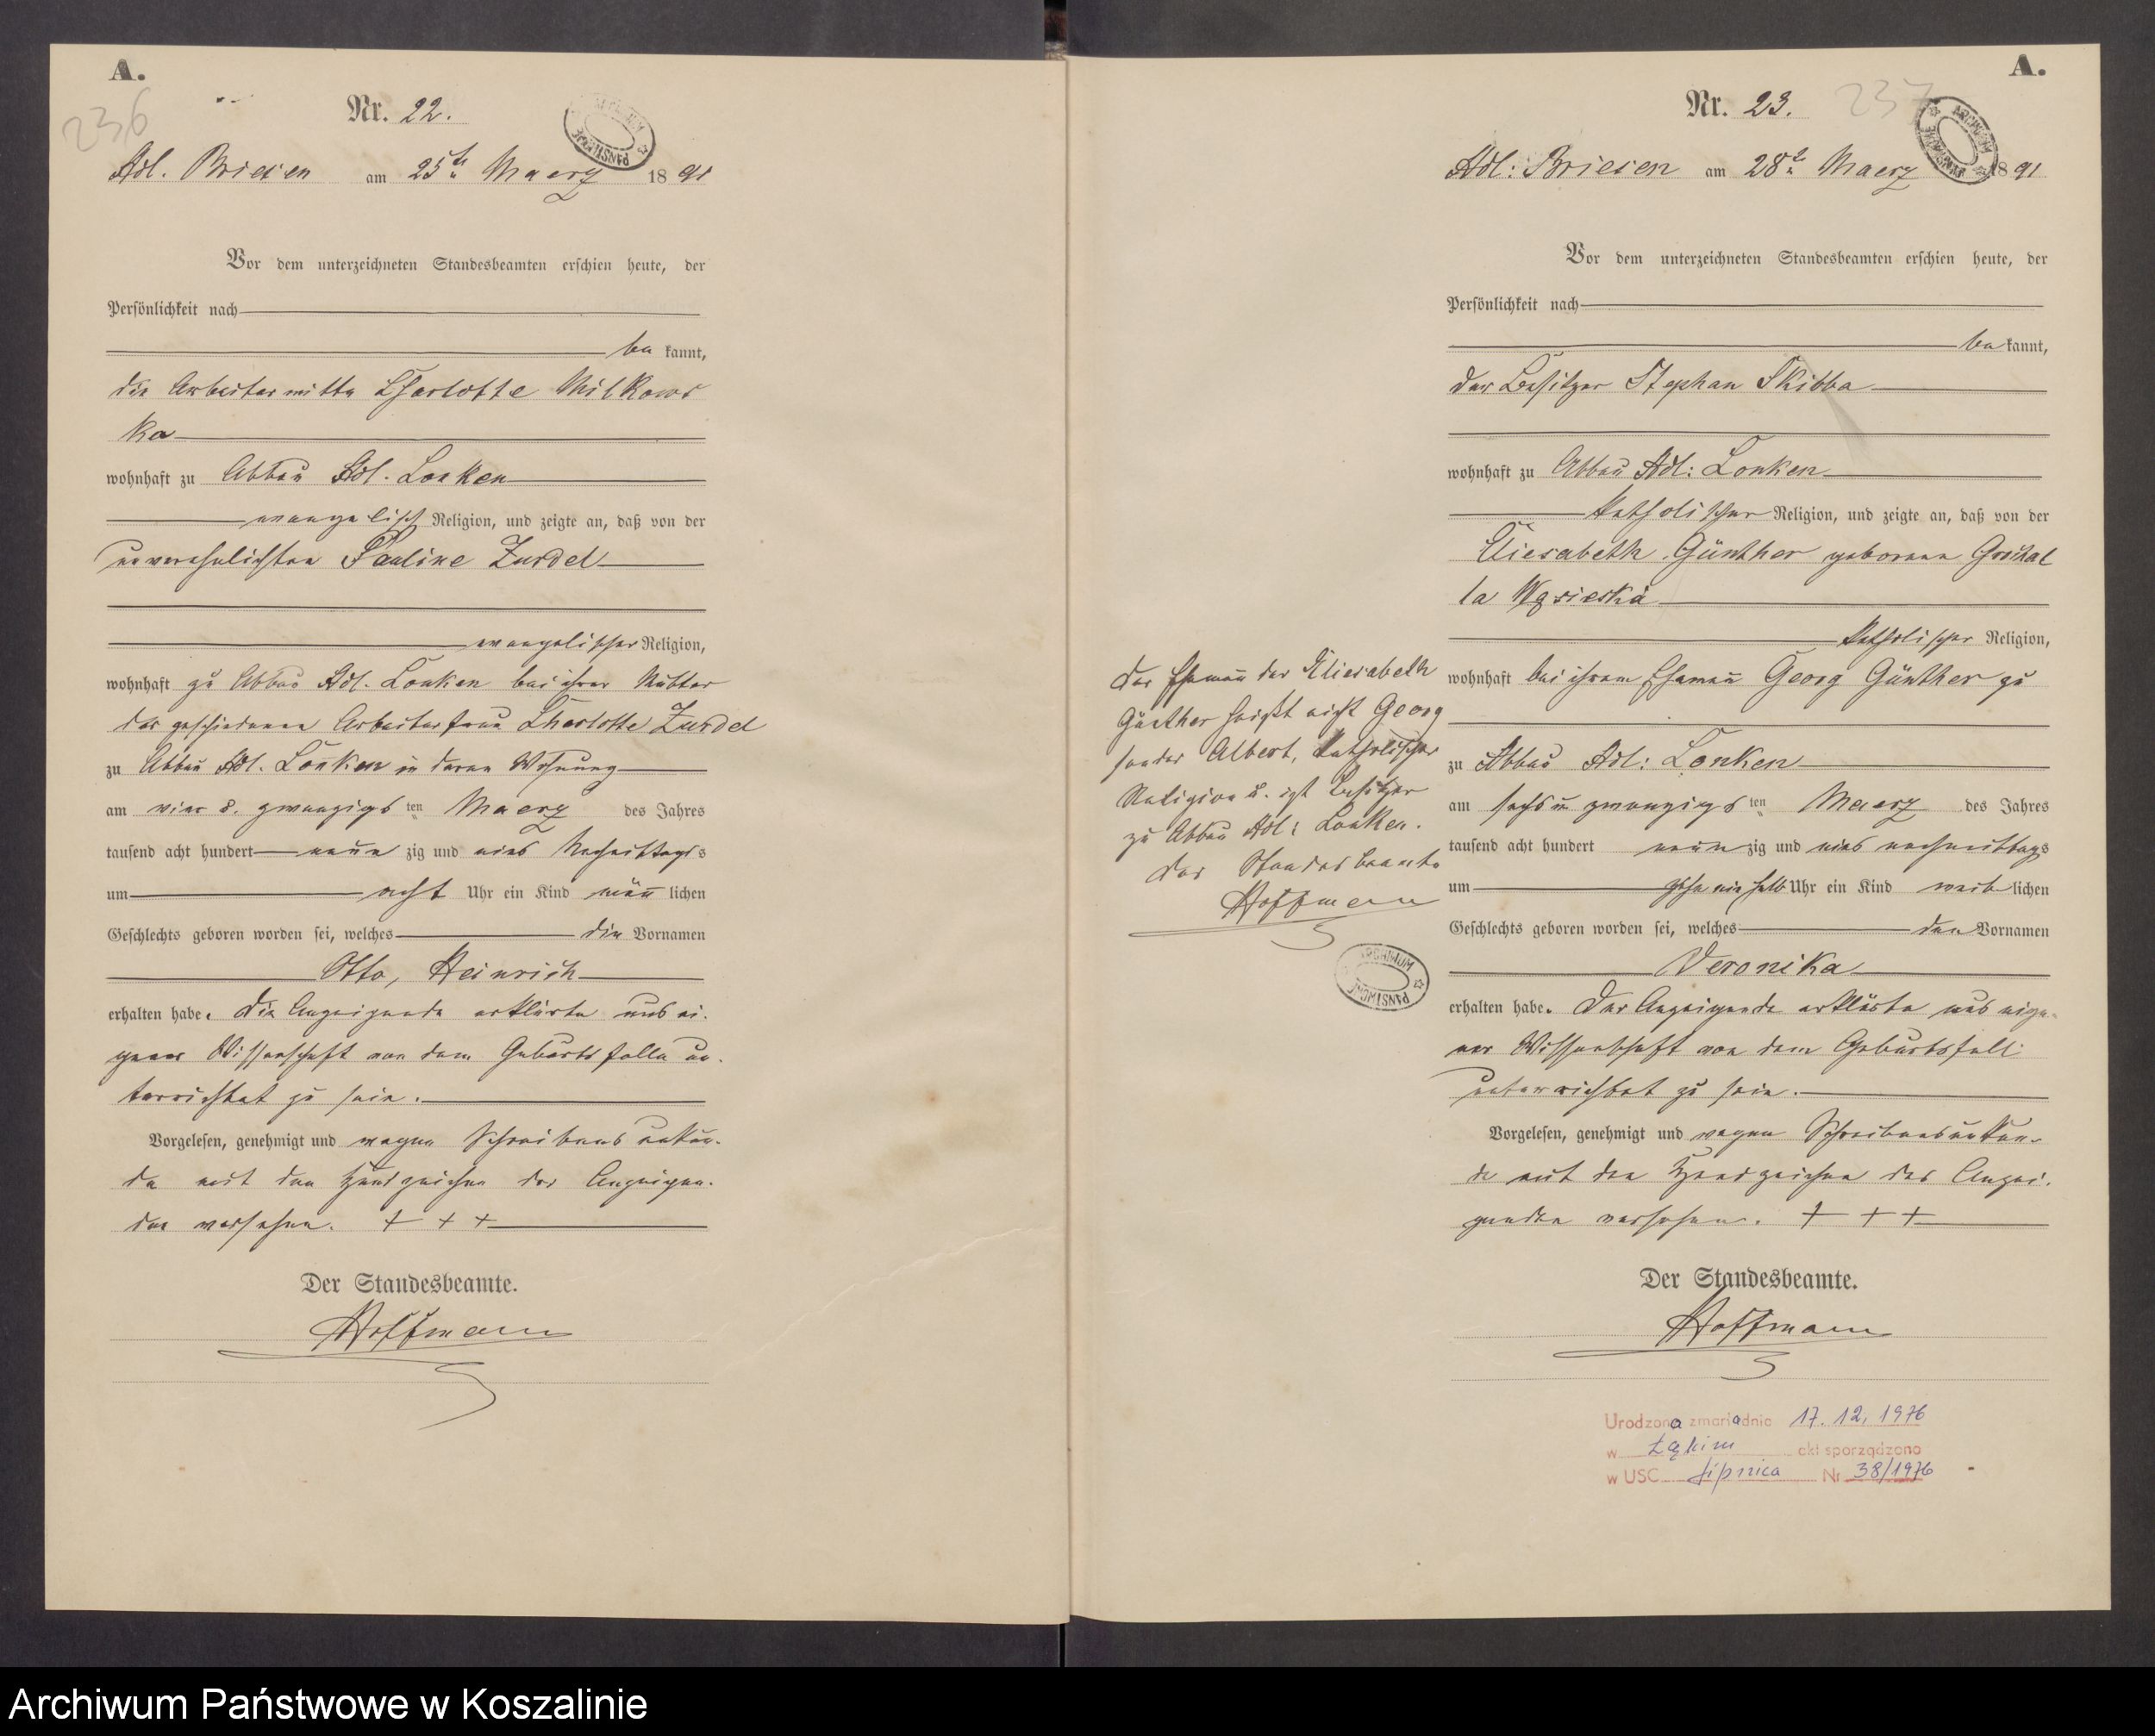 A.
236
Nr. 22.
ARCHIWUM PAŃSTWOWE
Adl. Briesen am 25ten Maerz 1891
Vor dem unterzeichneten Standesbeamten erschien heute, der
Persönlichkeit nach
be kannt,
die Arbeiterwittwe Charlotte Milkows
ka
wohnhaft zu Abbau Adl. Lonken
evangelisch Religion, und zeigte an, daß von der
unverehelichten Pauline Zurdel
evangelischer Religion,
wohnhaft zu Abbau Adl. Lonken bei ihrer Mutter
der geschiedenen Arbeiterfrau Charlotte Zurdel
zu Abbau Adl. Lonken in deren Wohnung
am vier u. zwanzigs ten Maerz des Jahres
tausend acht hundert neun zig und eins Nachmittags
um acht Uhr ein Kind männ lichen
Geschlechts geboren worden sei, welches die Vornamen
Otto, Heinrich
erhalten habe. Die Anzeigende erklärte aus ei-
gener Wissenschaft von dem Geburtsfalle un-
terrichtet zu sein.
Vorgelesen, genehmigt und wegen Schreibensunkun-
de mit den Handzeichen der Anzeigen-
den versehen. + + +
Der Standesbeamte.
Hoffmann
A.
237
Nr. 23.
ARCHIWUM PAŃSTWOWE
Adl: Briesen am 28ten Maerz 1891
Vor dem unterzeichneten Standesbeamten erschien heute, der
Persönlichkeit nach
be kannt,
der Besitzer Stephan Skibba
wohnhaft zu Abbau Adl: Lonken
katholischer Religion, und zeigte an, daß von der
Eliesabeth Günther geborene
la
katholischer Religion,
wohnhaft bei ihrem Ehemann Georg Günther zu
zu Abbau Adl: Lonken
am sechs u zwanzigs ten Maerz des Jahres
tausend acht hundert neun zig und eins nachmittags
um Uhr ein Kind weib lichen
Geschlechts geboren worden sei, welches den Vornamen
Veronika
erhalten habe. Der Anzeigende erklärte aus eige-
ner Wissenschaft von dem Geburtsfall
unterrichtet zu sein.
Vorgelesen, genehmigt und wegen Schreibensunkun-
de mit den Handzeichen des Anzei-
genden versehen. + + +
Der Standesbeamte.
Hoffmann
Der Ehemann der Eliesabeth
Günther heißt nicht Georg
sonder Albert, katholischer
Religion u. ist Besitzer
zu Abbau Adl: Lonken.
Der Standesbeamte
Hoffmann
ARCHIWUM PAŃSTWOWE
Urodzona zmarła dnia 17.12.1976
w Łąkim akt sporządzono
w USC Lipnica Nr 38/1976
Archiwum Państwowe w Koszalinie